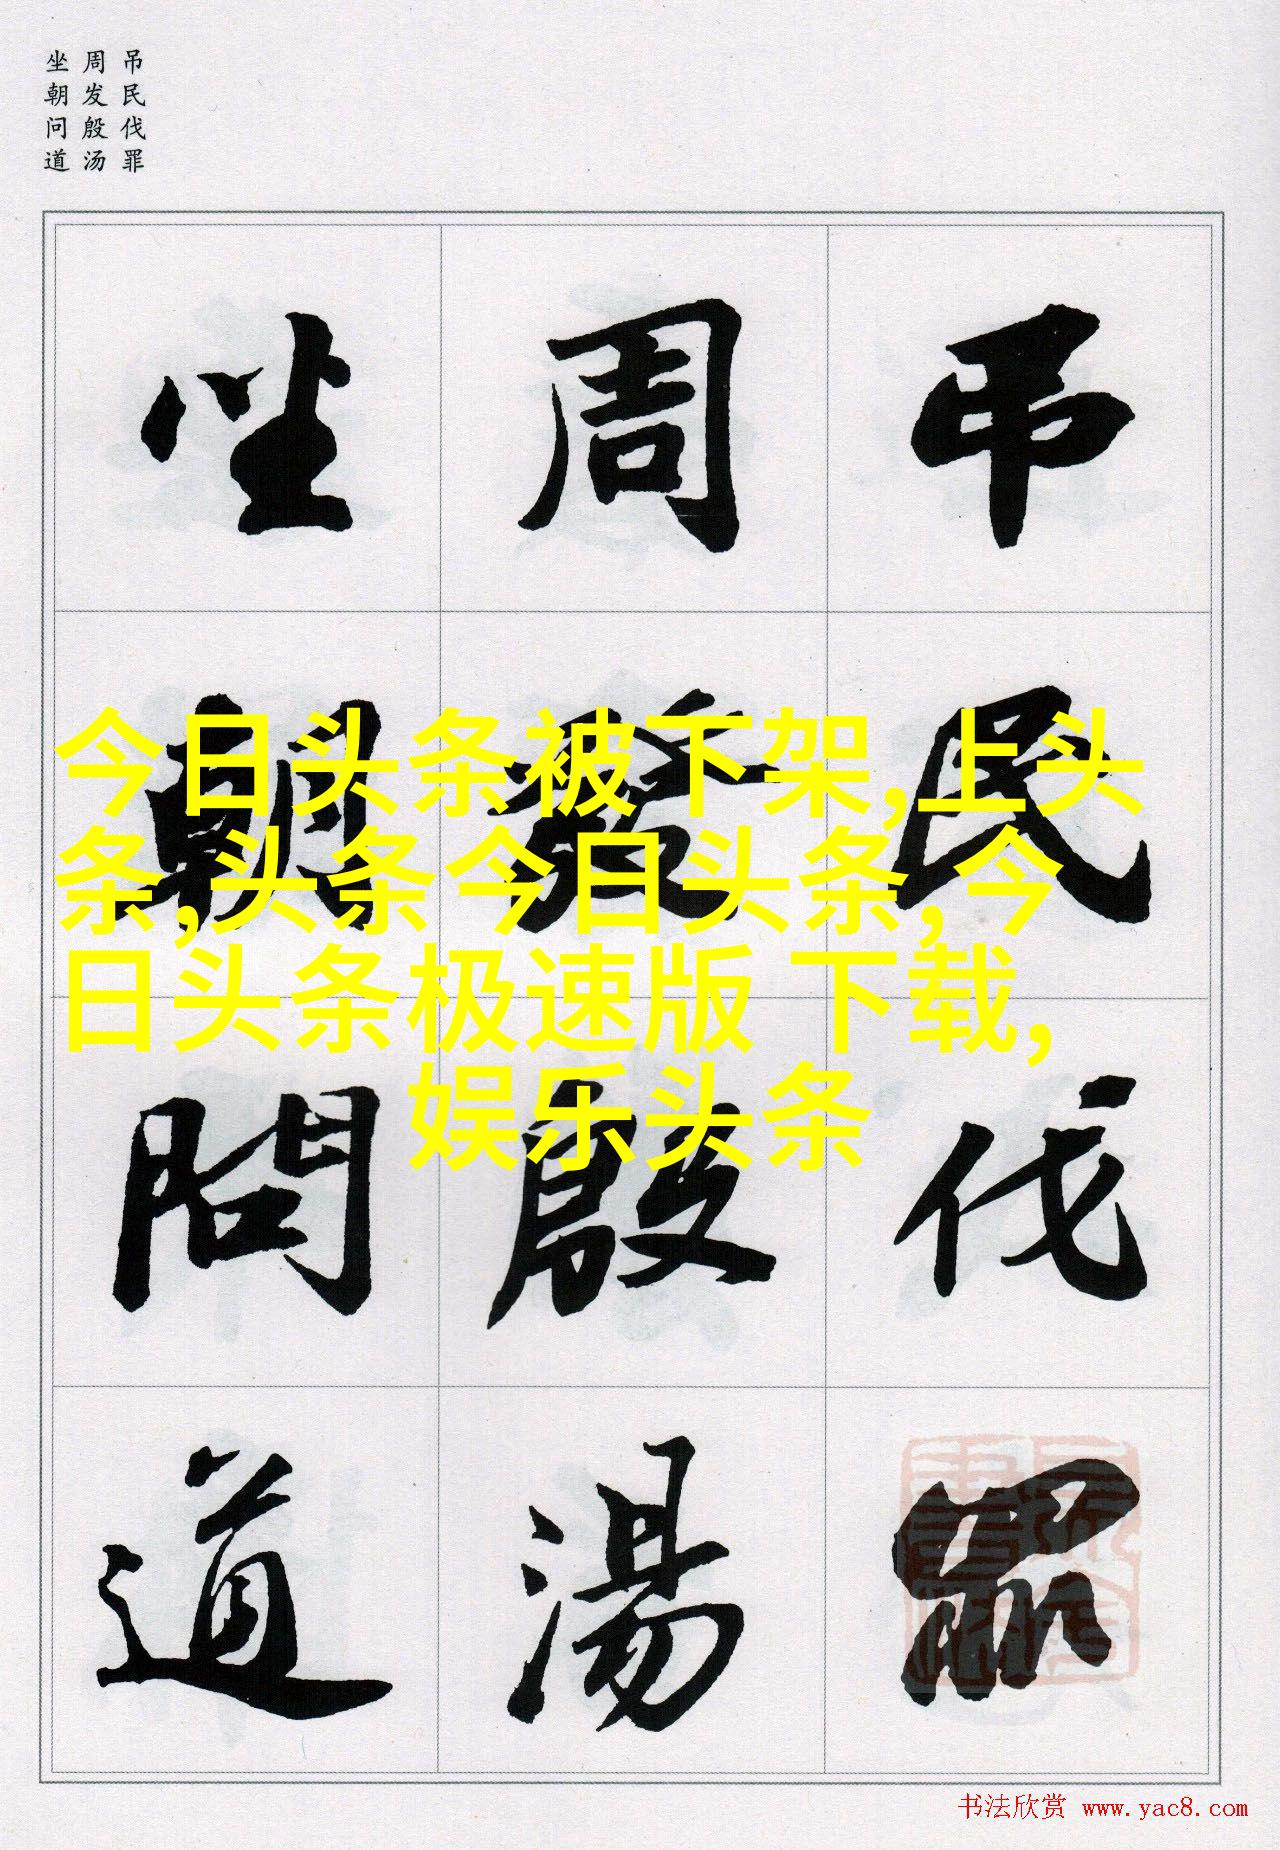 吊民伐罪
周发殷汤
坐朝问道
吊民伐罪
周發殷湯
坐朝問道
今日头条被下架,上头
条,头条今日头条,今
日头条极速版 下载,
娱乐头条
书法欣赏 www.yac8.com